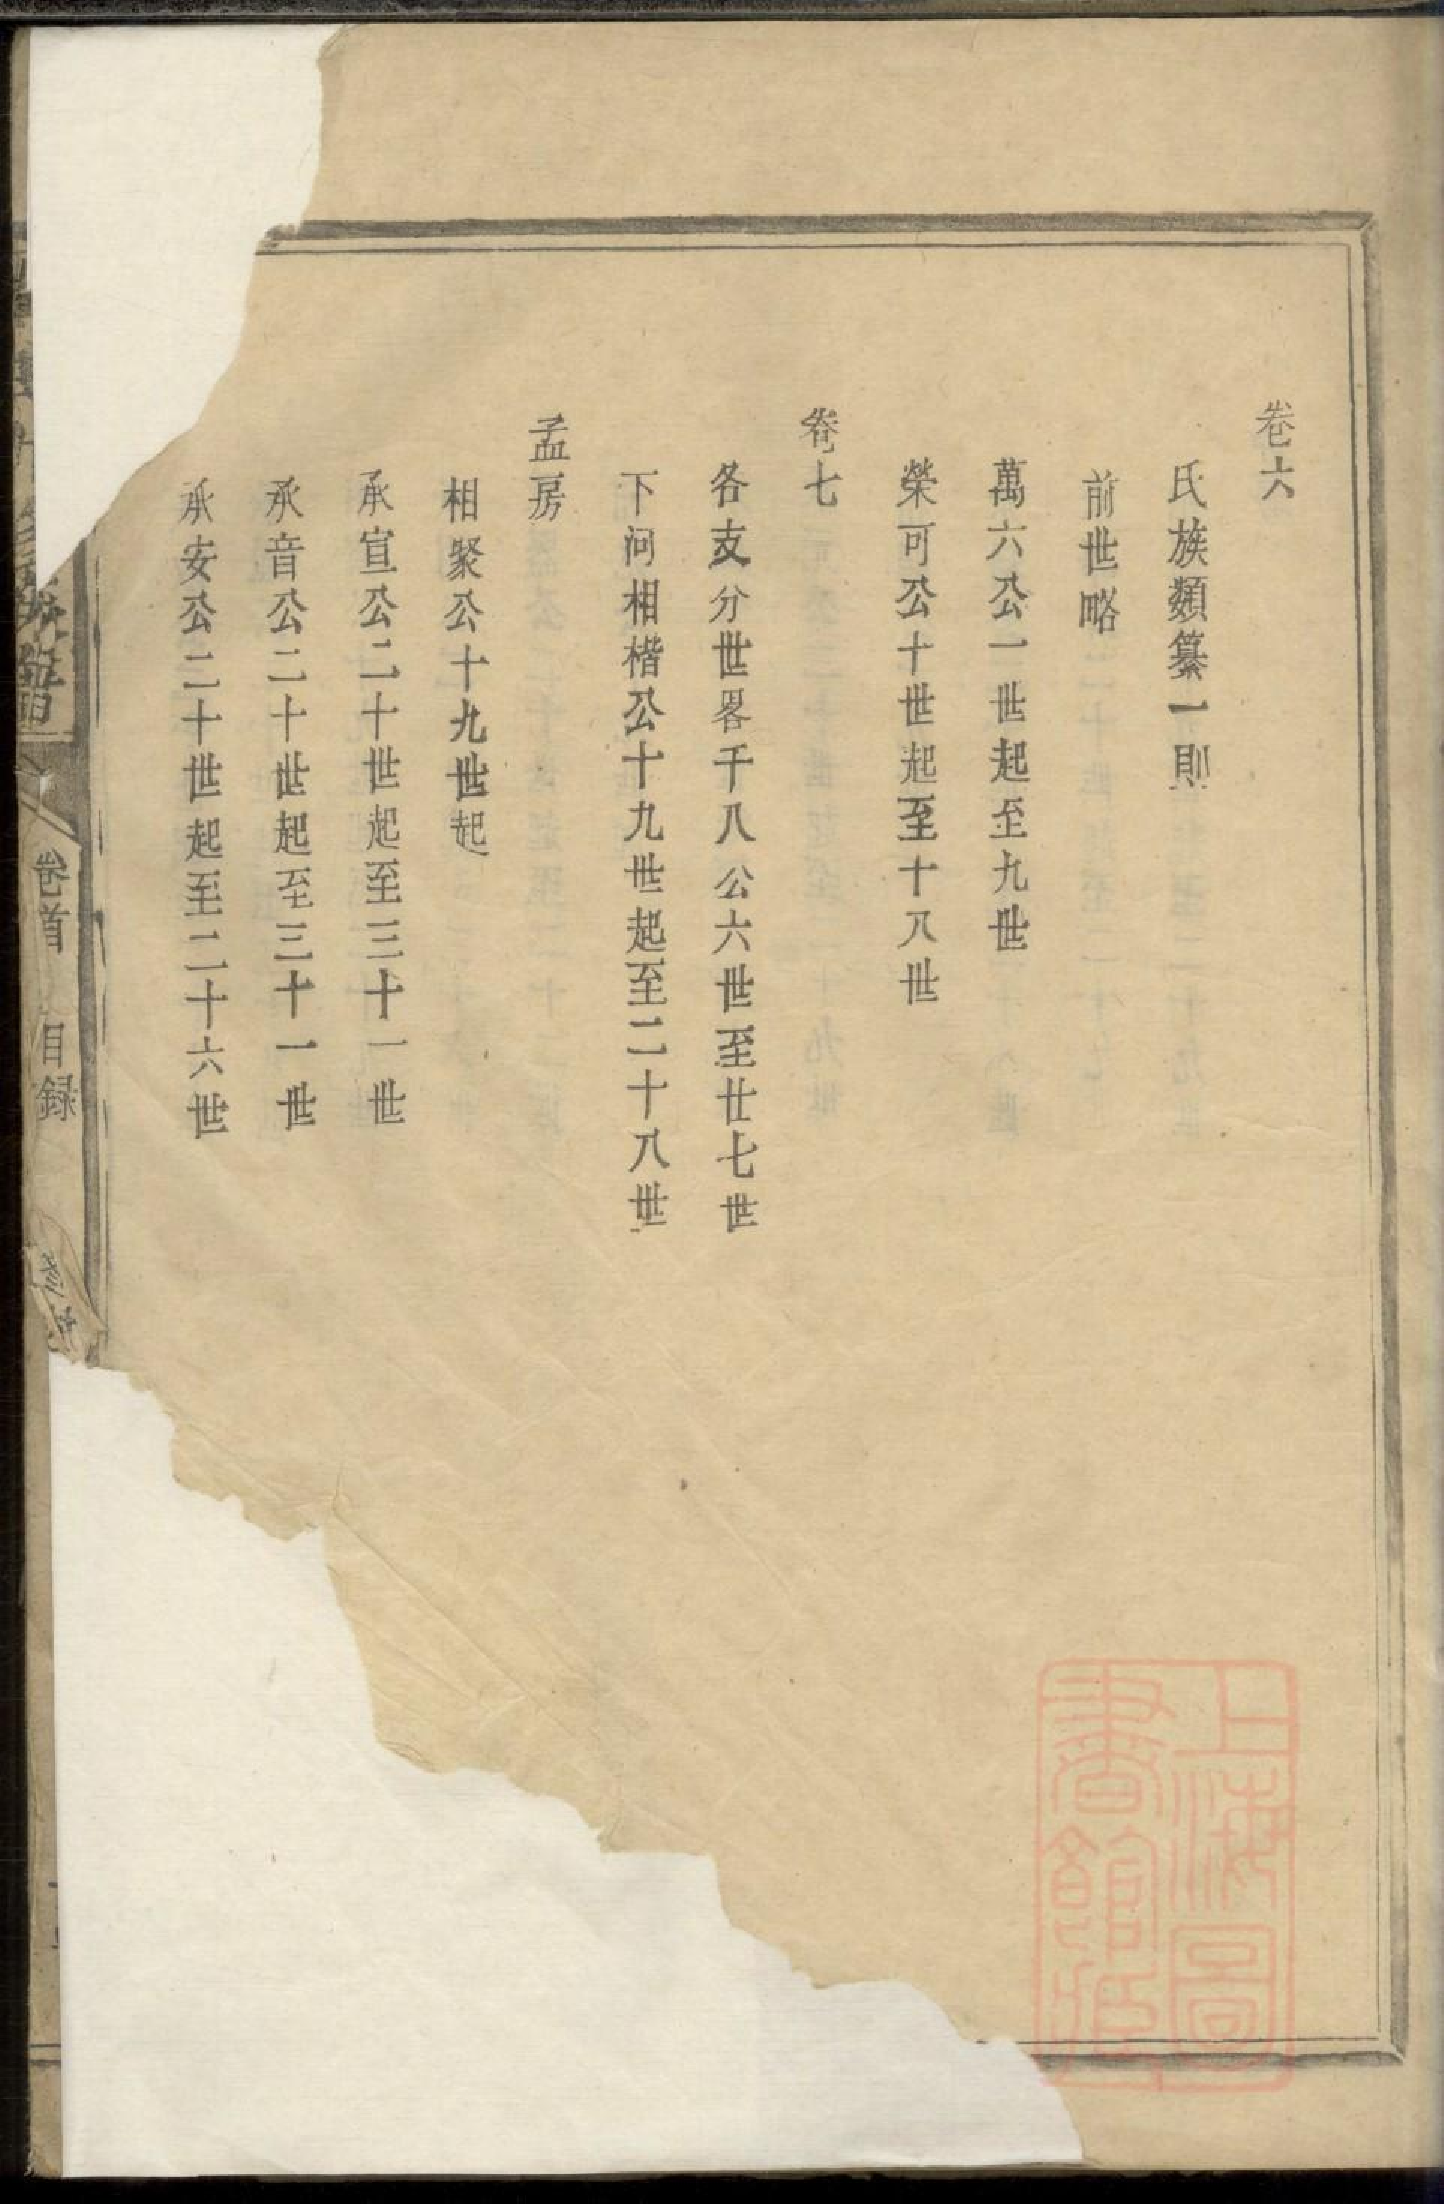 卷六
氏族類纂一則
前世略
萬六公一世起至九世
榮可公十世起至十八世
卷七
各支分世畧千八公六世至廿七世
下河相楷公十九世起至二十八世
孟房
相聚公十九世起
承宣公二十世起至三十一世
承音公二十世起至三十一世
承安公二十世起至二十六世
族譜
卷首
目録
上海圖
書館藏